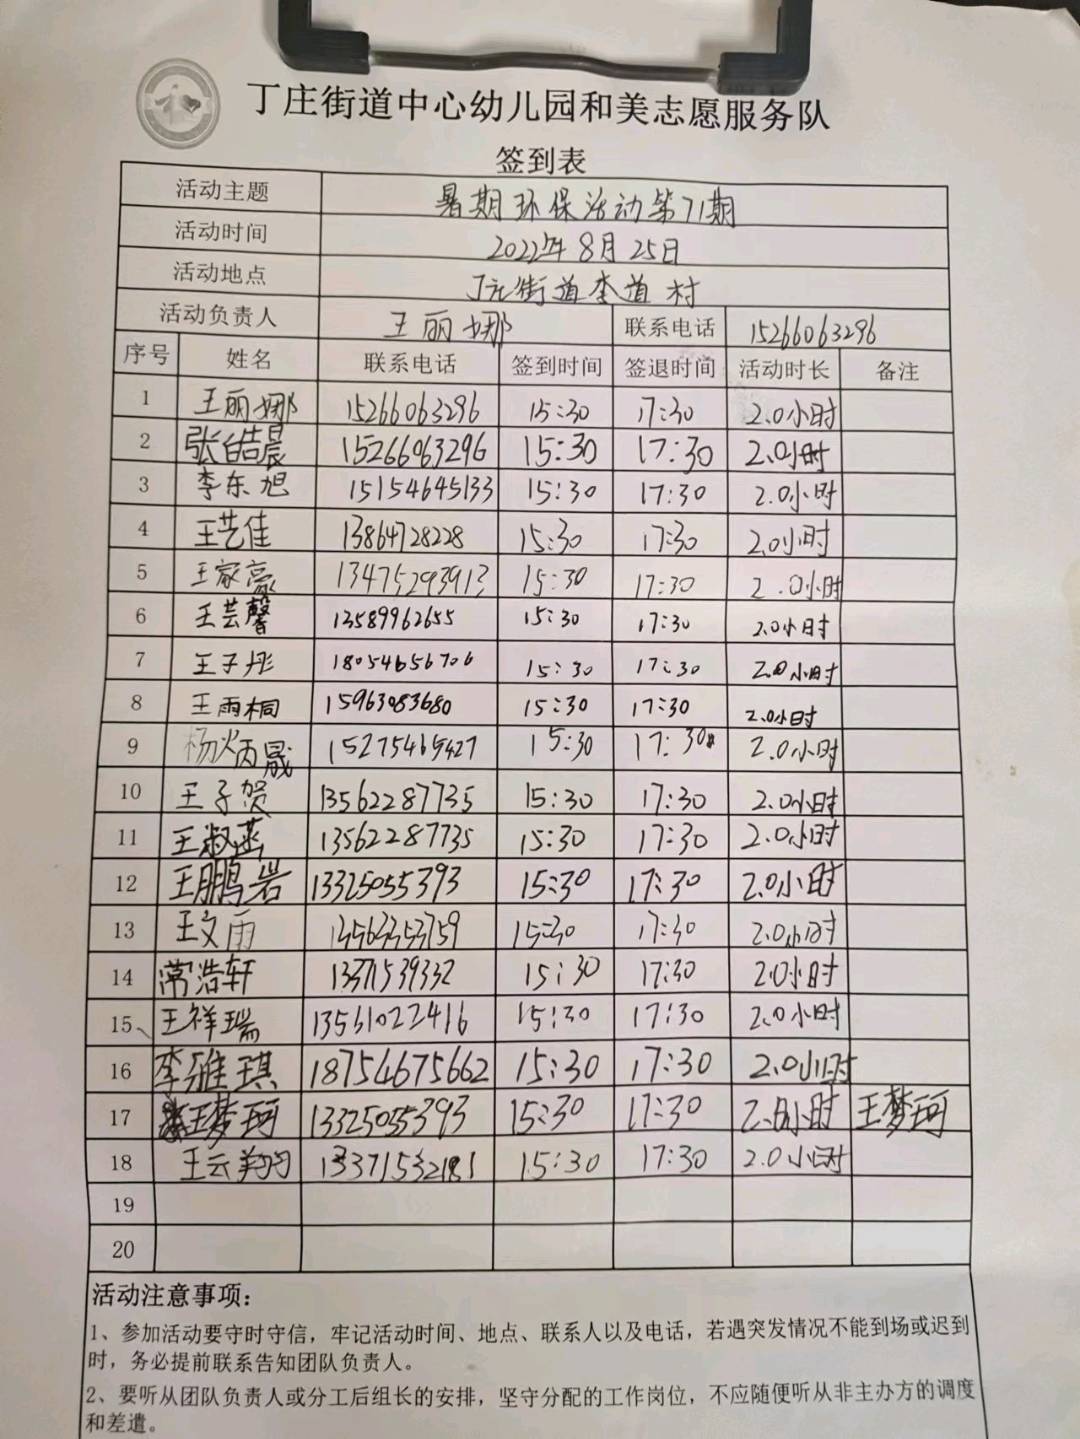 丁庄街道中心幼儿园和美志愿服务队
签到表
活动主题 暑期环保活动第71期
活动时间 2022年8月25日
活动地点 丁庄街道李道村
活动负责人 王丽娜 联系电话 15266063296
序号 姓名 联系电话 签到时间 签退时间 活动时长 备注
1 王丽娜 15266063296 15:30 17:30 2.0小时
2 张皓晨 15266063296 15:30 17:30 2.0小时
3 李东旭 15154645133 15:30 17:30 2.0小时
4 王艺佳 13864728228 15:30 17:30 2.0小时
5 王家豪 13475293913 15:30 17:30 2.0小时
6 王芸馨 13589962655 15:30 17:30 2.0小时
7 王子彤 18054656706 15:30 17:30 2.0小时
8 王雨桐 15963083680 15:30 17:30 2.0小时
9 杨炳晟 15275469427 15:30 17:30 2.0小时
10 王子贺 13562287735 15:30 17:30 2.0小时
11 王淑菡 13562287735 15:30 17:30 2.0小时
12 王鹏岩 13325055393 15:30 17:30 2.0小时
13 王文雨 15:30 17:30 2.0小时
14 常浩轩 13371539332 15:30 17:30 2.0小时
15 王祥瑞 13561022416 15:30 17:30 2.0小时
16 李雅琪 18754675662 15:30 17:30 2.0小时
17 王梦珂 13325055393 15:30 17:30 2.0小时 王梦珂
18 王云翔 15:30 17:30 2.0小时
19
20
活动注意事项：
1、参加活动要守时守信，牢记活动时间、地点、联系人以及电话，若遇突发情况不能到场或迟到
时，务必提前联系告知团队负责人。
2、要听从团队负责人或分工后组长的安排，坚守分配的工作岗位，不应随便听从非主办方的调度
和差遣。